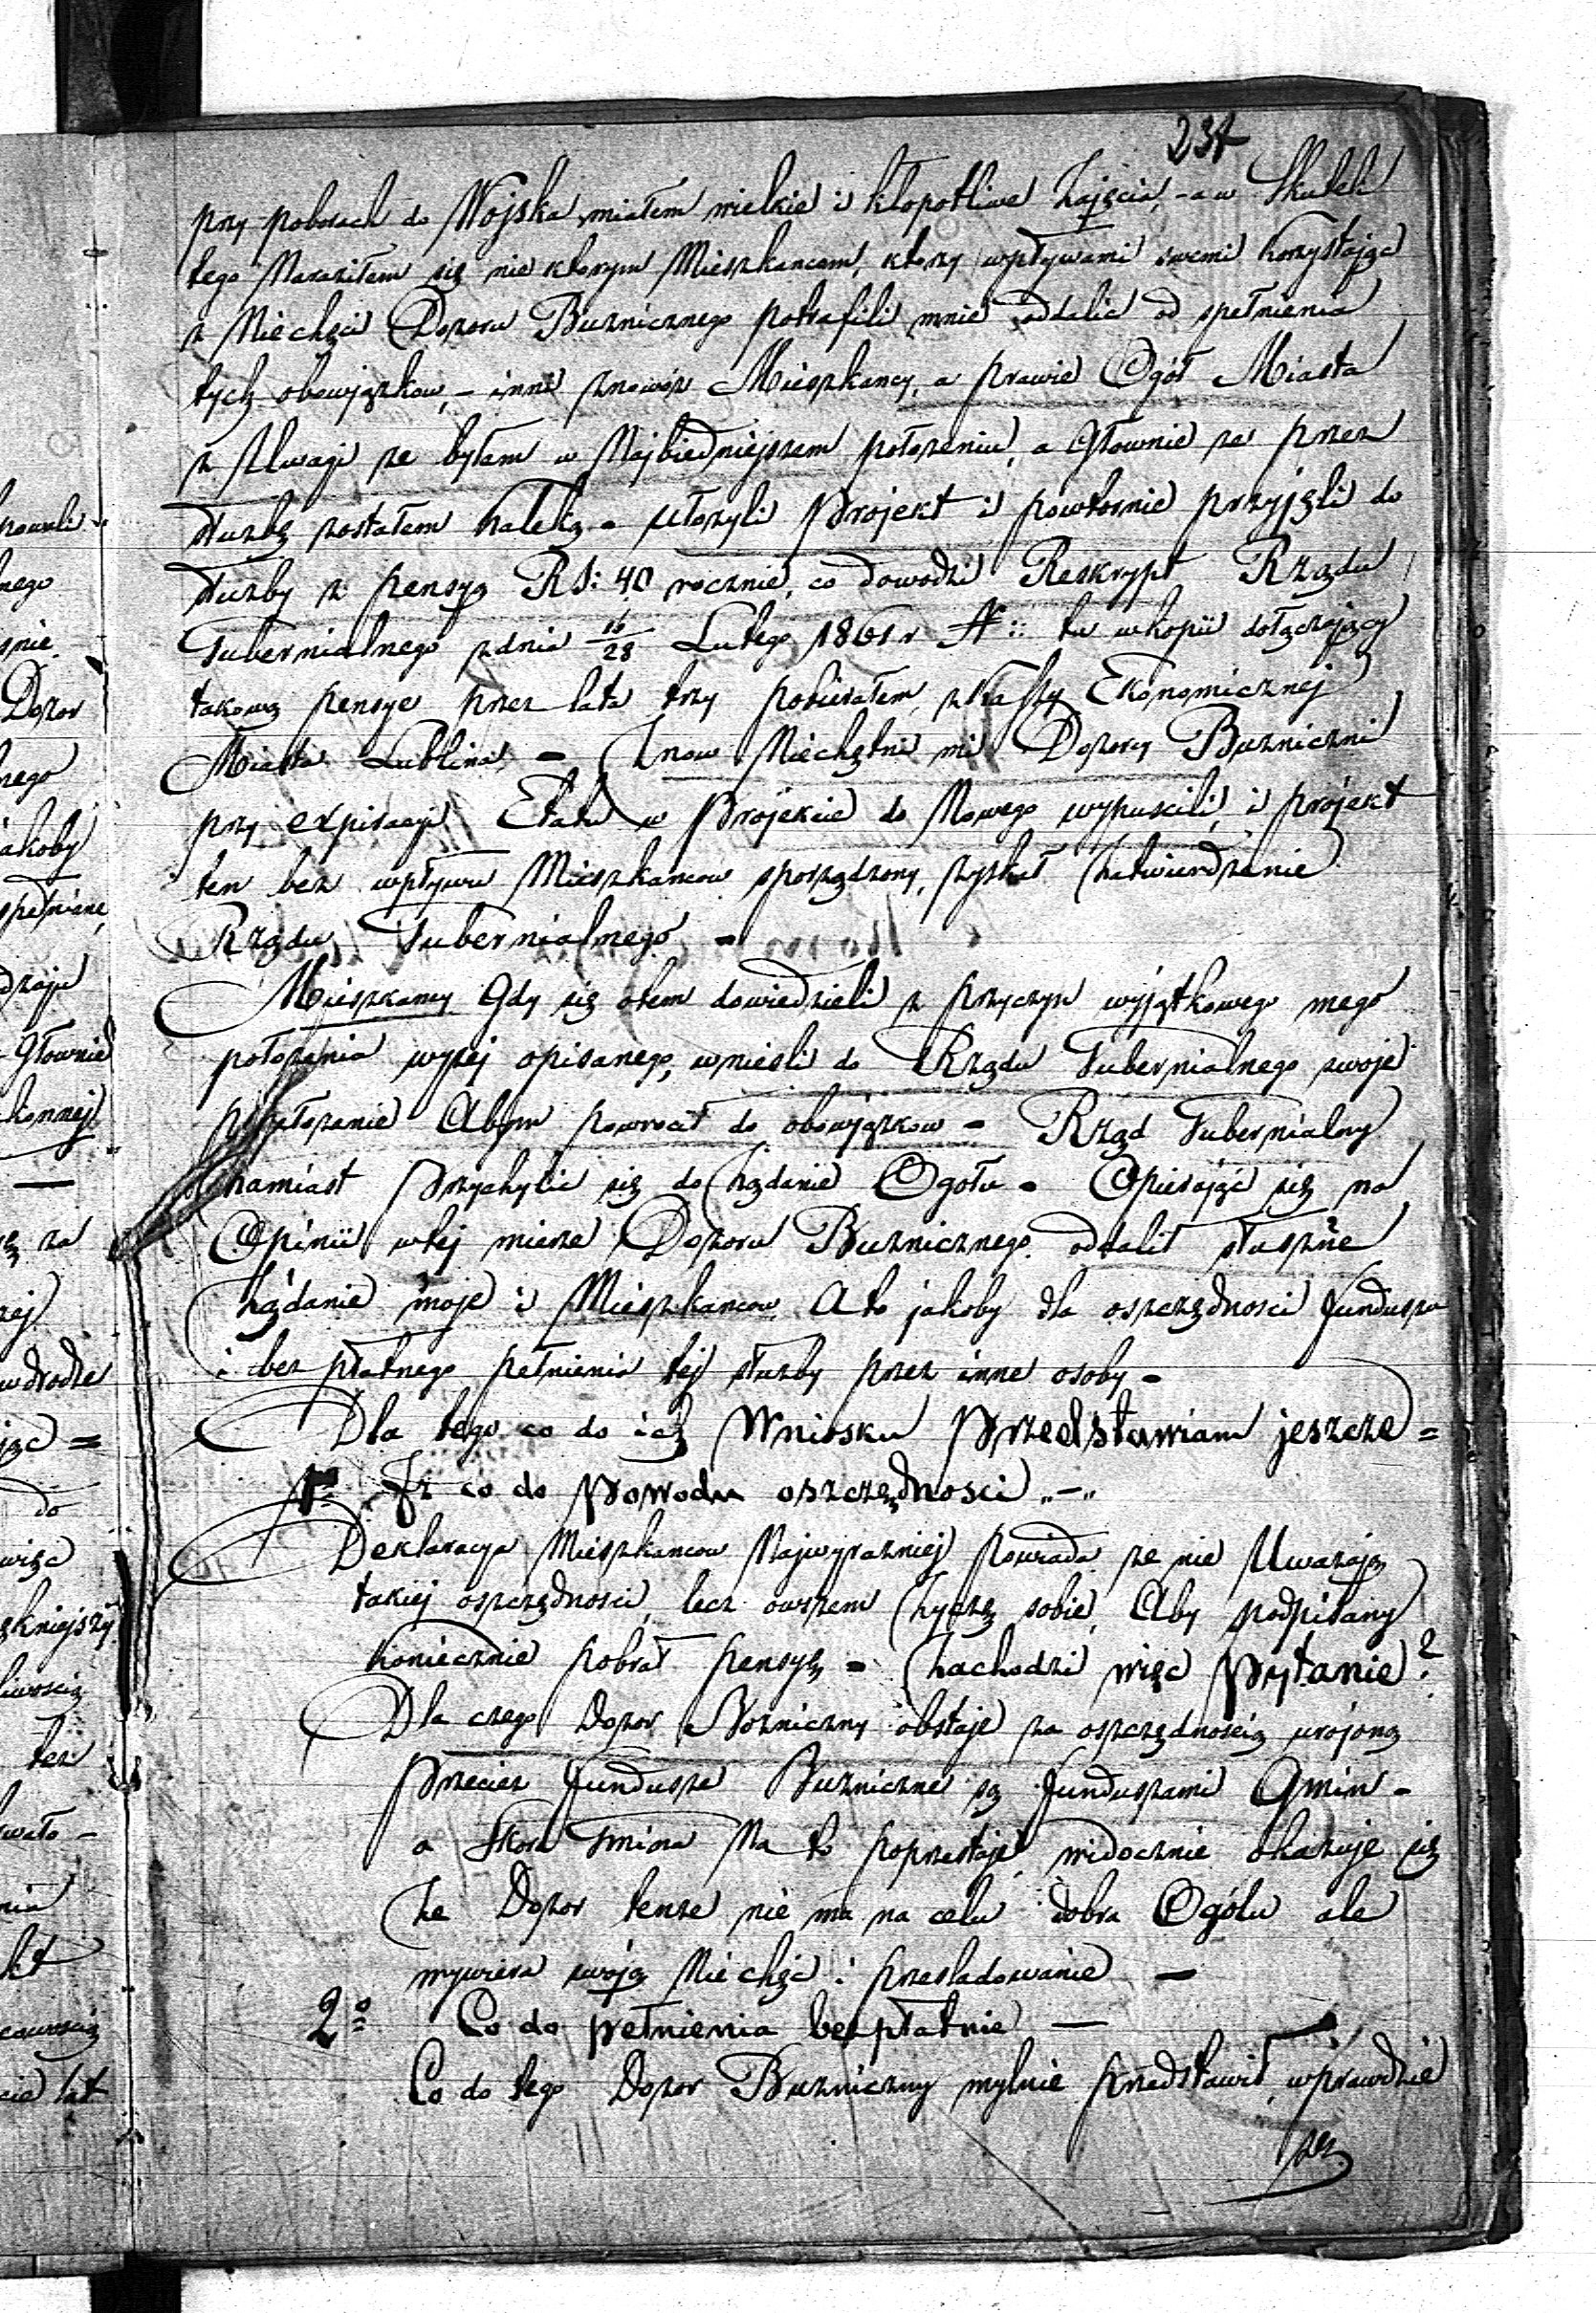 237
przy poborach do Wojska, miałem wielkie i kłopotliwe Zajęcia, - a w Skutek
tego Naraziłem się nie ktorym Mieszkancom, ktorzy wpływami swemi korzystając
z Niechęci Dozoru Buzniczneg potrafili mnie oddalić od spełnienia
tych obowjązkow, - inni znowóz Mieszkancy, a prawie Ogół Miasta
z Uwagi ze byłam w Najbiedniejszem położeniu, a Głownie ze przez
służbę zostałem Kaleką - ułozyli Projekt i powtornie przyjęli do
służby z pensyą RS: 40 rocznie, co dowodzi Reskrypt Rządu
Gubernialnego z dnia 16/28 Lutego 1861 r N:: tu w kopii dołączający
takową pensye przez lata trzy pobierałem, z Kassy Ekonomicznej
Miasta Lublina, - Znow Niechętni mi Dozory Buzniczni
przy expiracyi Etatu w Projekcie do Nowego wypuscili, i projekt
ten bez wpływu Mieszkancow sporządzony, zyskał Zatwierdzenie
Rządu Gubernialnego -
Mieszkancy Gdy się otem dowiedzieli z przyczyn wyjątkowego mego
położenia wyzej opisanego, wniesli do Rządu Gubernialnego swoje
przełozenie Abym powrocił do obowjązkow - Rząd Gubernialny
Zamiast Przychylic się do Ządanie Ogołu - Opierając się na
Opinii w tej mierze Dozoru Buznicznego oddalił słuszne
Ządanie moje i Mieszkancow A to jakoby dla oszczędnosci Funduszu
i bez płatnego pełnienia tej służby przez inne osoby -
Dla tego co do ich Wniosku Przedstawiam jeszcze =
1o Iz co do Powodu oszczędnosci „-„
Deklaracya Mieszkancow Najwyrazniej powiada ze nie Uwazają
takiej oszczędnosci, lecz owszem Zyczą sobie, Aby podpisany
koniecznie pobrał pensyę - Zachodzi więc Pytanie?
Dla czego Dozor Bozniczny obstaje za oszczędnoscią urojoną
Przeciez Fundusze Buzniczne są Funduszami Gmin -
a Skoro Gmina Na to poprzestaje, widocznie okazuje się
Ze Dozor tenze nie ma na celu dobra Ogółu ale
wywiera swoją Nie chęć i przesladowanie -
2o Co do pełnienia bezpłatnie -
Co do tego Dozor Buzniczny mylnie przedstawił, wprawdzie